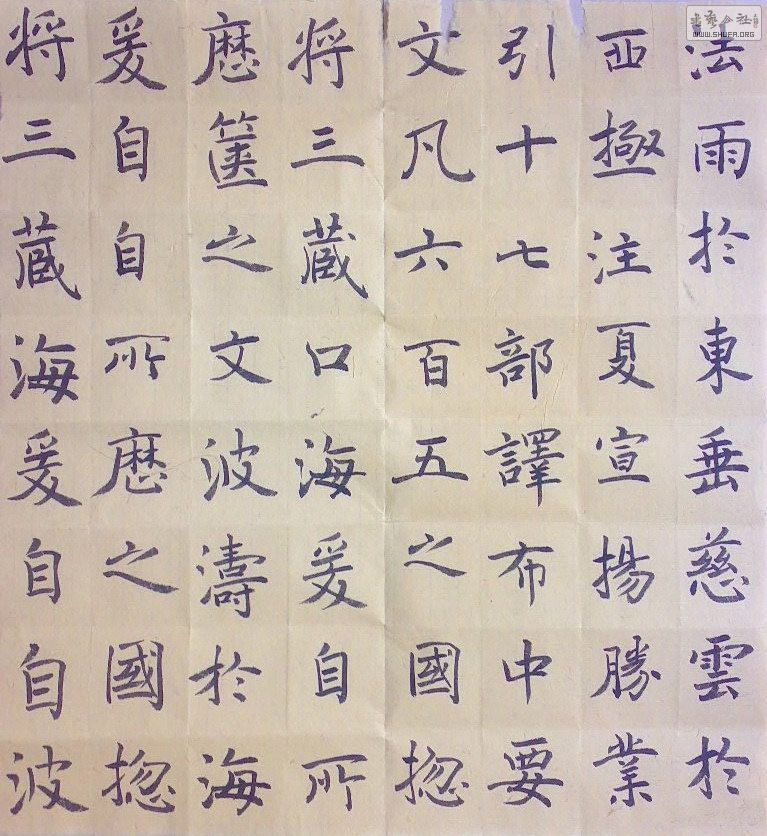 法雨於東垂慈雲於
西極注夏宣揚勝業
引十七部譯布中要
文凡六百五之國揔
将三蔵口海爰自所
歴篋之文波濤於海
爰自自所歴之國揔
将三蔵海爰自自波
書藝公社
WWW.SHUFA.ORG